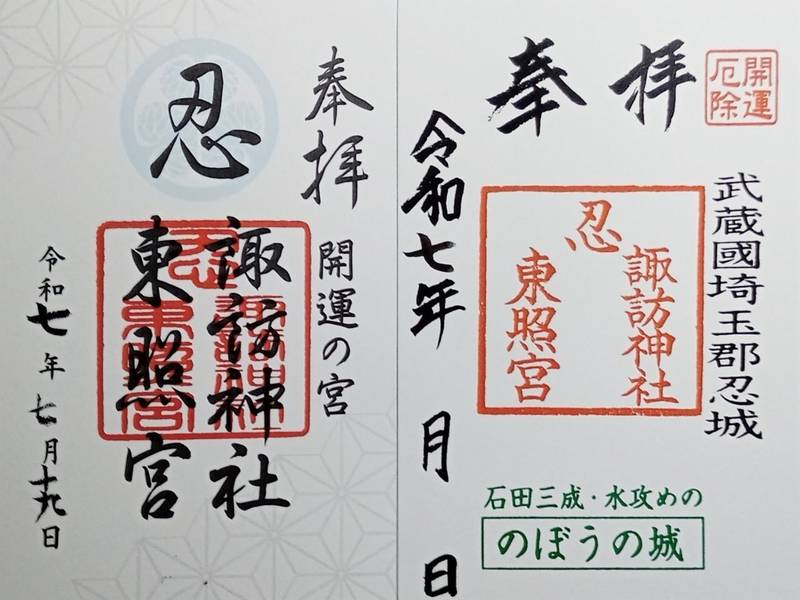 奉拝
開運の宮
忍
諏訪神社
東照宮
忍
諏訪神社
東照宮
令和七年七月十九日
開運
厄除
武蔵國埼玉郡忍城
奉拝
忍
諏訪神社
東照宮
令和七年 月 日
石田三成・水攻めの
のぼうの城